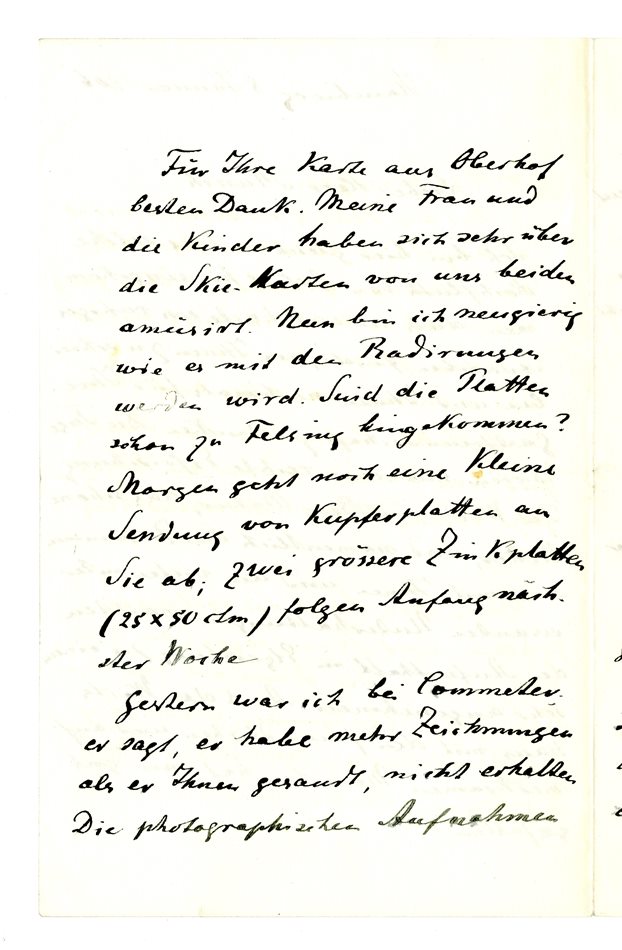 Für Ihre Karte aus Oberhof
besten Dank. Meine Frau und
die Kinder haben sich sehr über
die Skie-Karten von uns beiden
amüsirt. Nun bin ich neugierig
wie es mit den Radirungen
werden wird. Sind die Platten
schon zu Felsing hingekommen?
Morgen geht noch eine Kleine
Sendung von Kupferplatten an
Sie ab; zwei grössere Zinkplatten
(25 x 50 ctm) folgen Anfang näch-
ster Woche
Gestern war ich bei Commeter,
er sagt, er habe mehr Zeichnungen
als er Ihnen gesandt, nicht erhalten
Die photographischen Aufnahmen